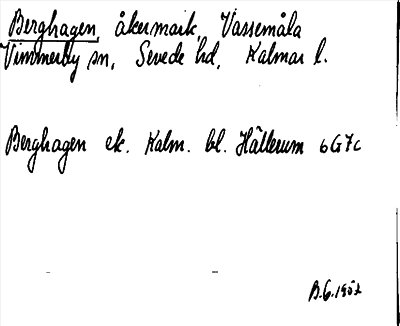 Berghagen, åkermark, Vassemåla
Vimmerby sn, Sevede hd, Kalmar l.
Berghagen ek. Kalm. bl. Hällerum 6G7c
B.G. 1957